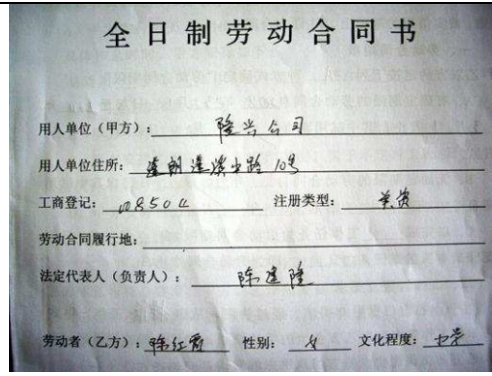 全日制劳动合同书
用人单位（甲方）：隆兴公司
用人单位住所：道朗 路 10号
工商登记： 8504 注册类型：美资
劳动合同履行地：
法定代表人（负责人）：陈建隆
劳动者（乙方）：陈红霞 性别：女 文化程度：中学